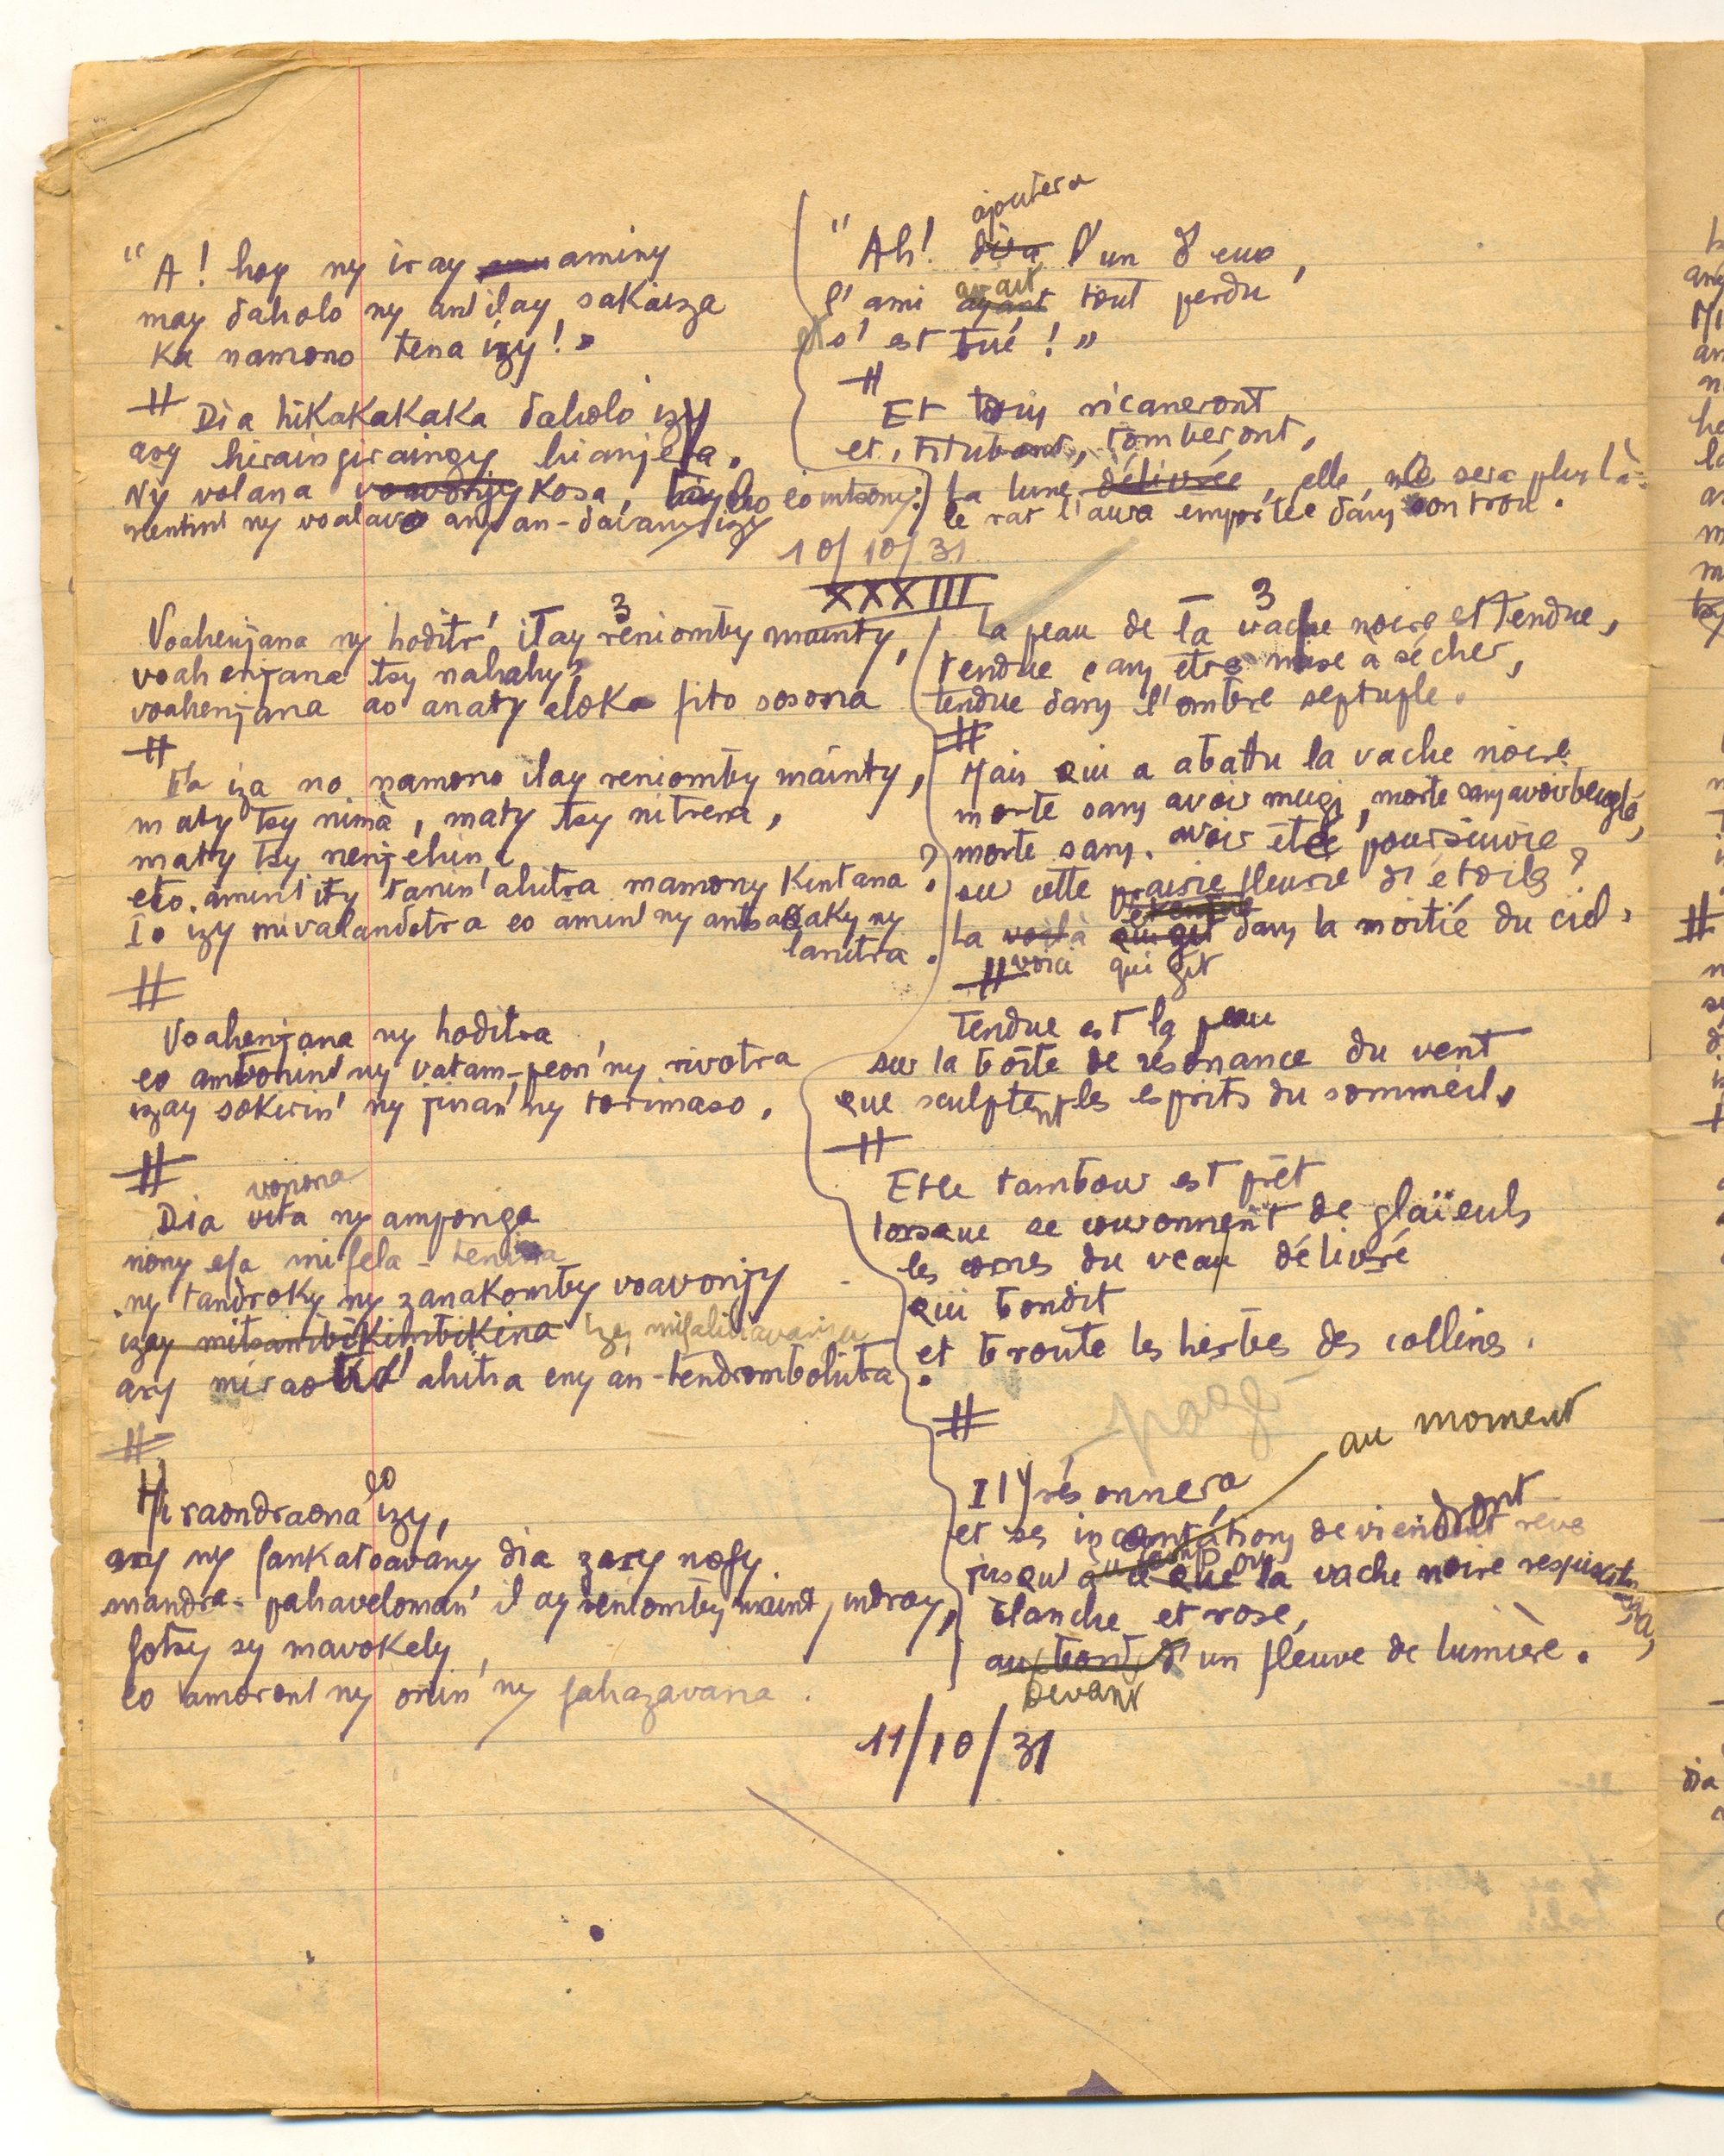 "A! hoy ny iray aminy
may daholo ny an'ilay sakaiza
Ka namono tena izy!»
#
Dia hikakakaka daholo izy
ary hiraingiraingy hianjera.
Ny volana voavonjy Kosa, tsy ho eo intsony:
nentin' ny voalavo any an-davany izy
ajoutera
"Ah! dira l'un d'eux,
avait
l'ami ayant tout perdu
s'est tué!»
#
Et tous ricaneront
et, titubant, tomberont,
La lune délivrée, elle, ne sera plus là:
le rat l'aura emportée dans son trou.
10/10/31
XXXIII
3
Voahenjana ny hoditr' ilay reniomby mainty,
voahenjana tsy nahahy,
voahenjana ao anaty aloka fito sosona
#
Fa iza no namono ilay reniomby mainty,
maty tsy nimà, maty tsy nitrena,
maty tsy nenjehina
eto amin' ity tanin' ahitra mamony Kintana?
Io izy mivalandotra eo amin' ny antsasaky ny
lanitra.
#
Voahenjana ny hoditra
eo ambonin' ny vatam-peon' ny rivotra
izay sokirin' ny jinan' ny torimaso.
#
vonona
Dia vita ny amponga
nony efa mifela-
ny tandroky ny zanakomby voavonjy
izay mitsambikimbikina izay
ary miraotr' ahitra eny an-tendrombohitra.
#
eo
Hiraondraona izy,
ary ny fankatoavany dia zary nofy
mandra-pahaveloman' ilay reniomby mainty indray,
fotsy sy mavokely
eo amoron' ny onin' ny fahazavana.
3
La peau de la vache noire est tendue,
tendue sans être mise à sécher,
tendue dans l'ombre septuple.
#
Mais qui a abattu la vache noire
morte sans avoir mugi, morte sans avoir beuglé,
morte sans avoir été poursuivie
sur cette prairie fleurie d'étoiles?
La voilà qui gît dans la moitié du ciel.
voici qui gît
#
Tendue est la peau
sur la boîte de résonance du vent
que sculptent les esprits du sommeil.
#
Et le tambour est prêt
lorsque se couronnent de glaïeuls
les cornes du veau délivré
qui bondit
et broute les herbes des collines.
#
au moment
Il y résonnera
et ses incantations deviendront rêve
jusqu'à ce que la vache noire ressuscite,
blanche et rose,
au bord d'un fleuve de lumière.
devant
11/10/31